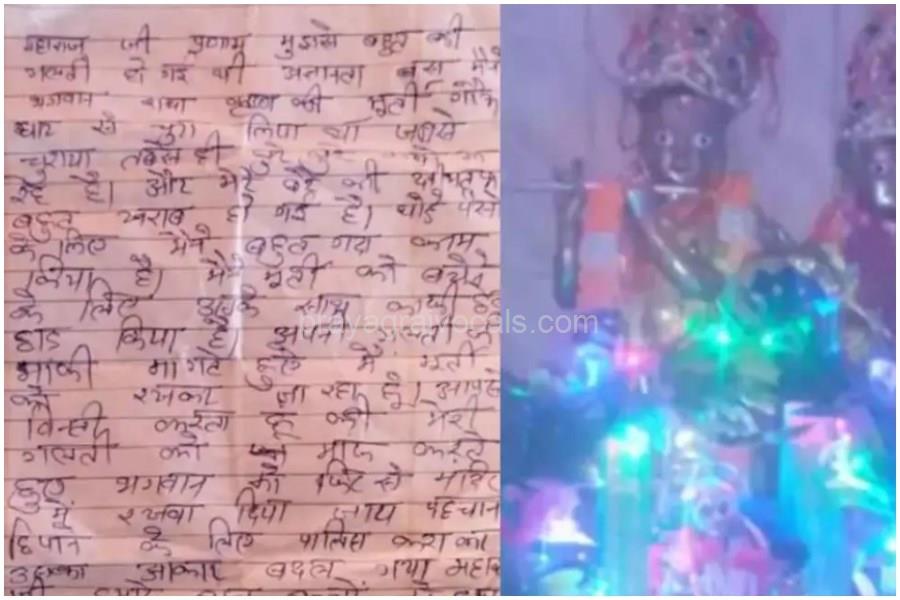 महाराज जी प्रणाम मुझसे बहुत बड़ी
गलती हो गई थी अज्ञानता बस मैंने
भगवान राधा कृष्ण की मूर्ती गौघाट
से चुरा लिया था जबसे
चुराया तबसे ही बुरे
रहे है। और मेरे बेटे की तबीयत
बहुत खराब हो गई है। थोड़े पैसो
के लिए मैंने बहुत गन्दा काम
किया है। मैंने मूर्ती को बेचने
के लिए उसके साथ काफी छेड़
छाड़ किया है। अपनी गलती की
माफी मांगते हुए मैं मूर्ती
को रखकर जा रहा हूं। आपसे
विन्ती करता हूं की मेरी
गलती को माफ करते
हुए भगवान को फिर से मंदिर
में रखवा दिया जाय पहचान
छिपाने के लिए पालिस कराकर
उसका आकार बदल गया महाराज
जी हमारे बाल बच्चों
prayagrajlocals.com